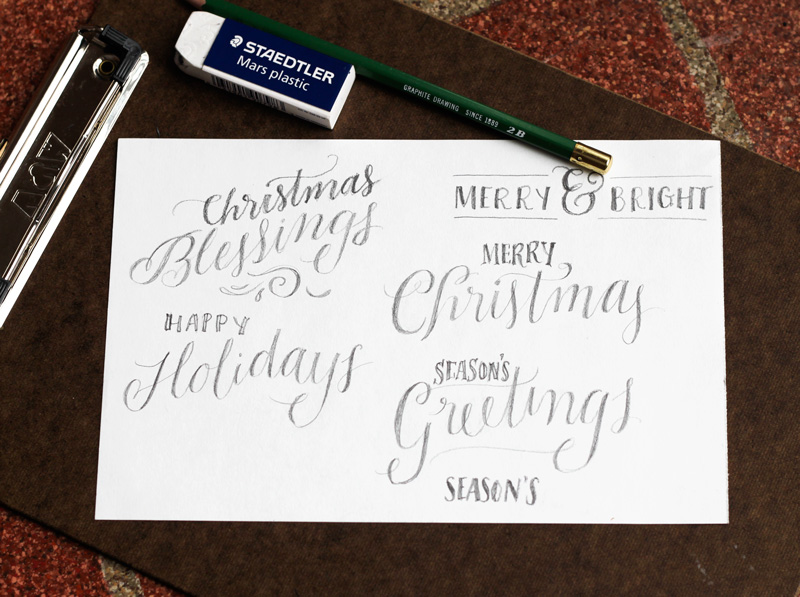 STAEDTLER
Mars plastic
GRAPHITE DRAWING SINCE 1889 2B
Christmas
Blessings
HAPPY
Holidays
MERRY & BRIGHT
MERRY
Christmas
SEASON'S
Greetings
SEASON'S